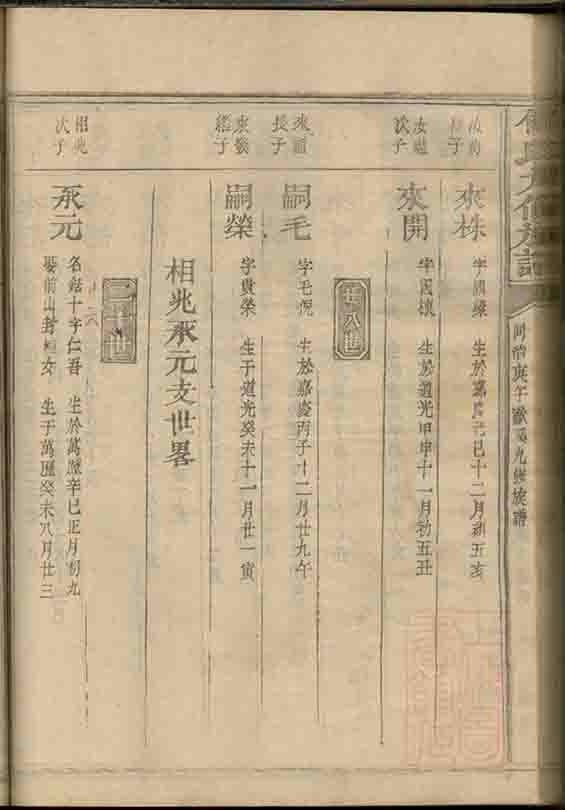 氏
族譜
同治庚午歲
九修族譜
次子
來株
字國樑 生於嘉慶己巳十二月初五亥
次子
來開
字國植 生於道光甲申十一月初五丑
廿八世
長子
嗣毛
字毛倪 生於嘉慶丙子十二月廿九午
繼子
嗣榮
字貴榮 生于道光癸未十一月廿一寅
相兆承元支世畧
二十世
相兆
次子
承元
字仁吾 生於萬曆辛巳正月初九
娶前山封 女 生于萬曆癸未八月廿三